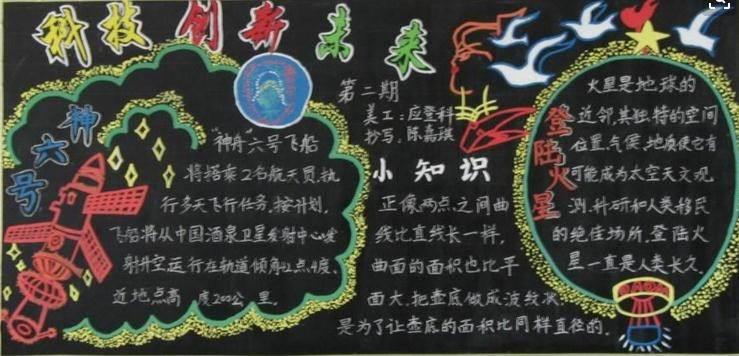 科技创新未来
神六号
"神舟"六号飞船
将搭乘2名航天员,执
行多天飞行任务,按计划,
飞船将从中国酒泉卫星发射中心发
射升空运行在轨道倾角42点4度,
近地点高 度200公里.
第二期
美工:应登科
抄写:陈嘉琪
小知识
正像两点之间曲
线比直线长一样,
曲面的面积也比平
面大.把壶底做成波纹状
是为了让壶底的面积比同样直径的.
登陆火星
火星是地球的
近邻,其独特的空间
位置,气侯,地质使它有
可能成为太空天文观
测,科研和人类移民
的绝佳场所,登陆火
星一直是人类长久.